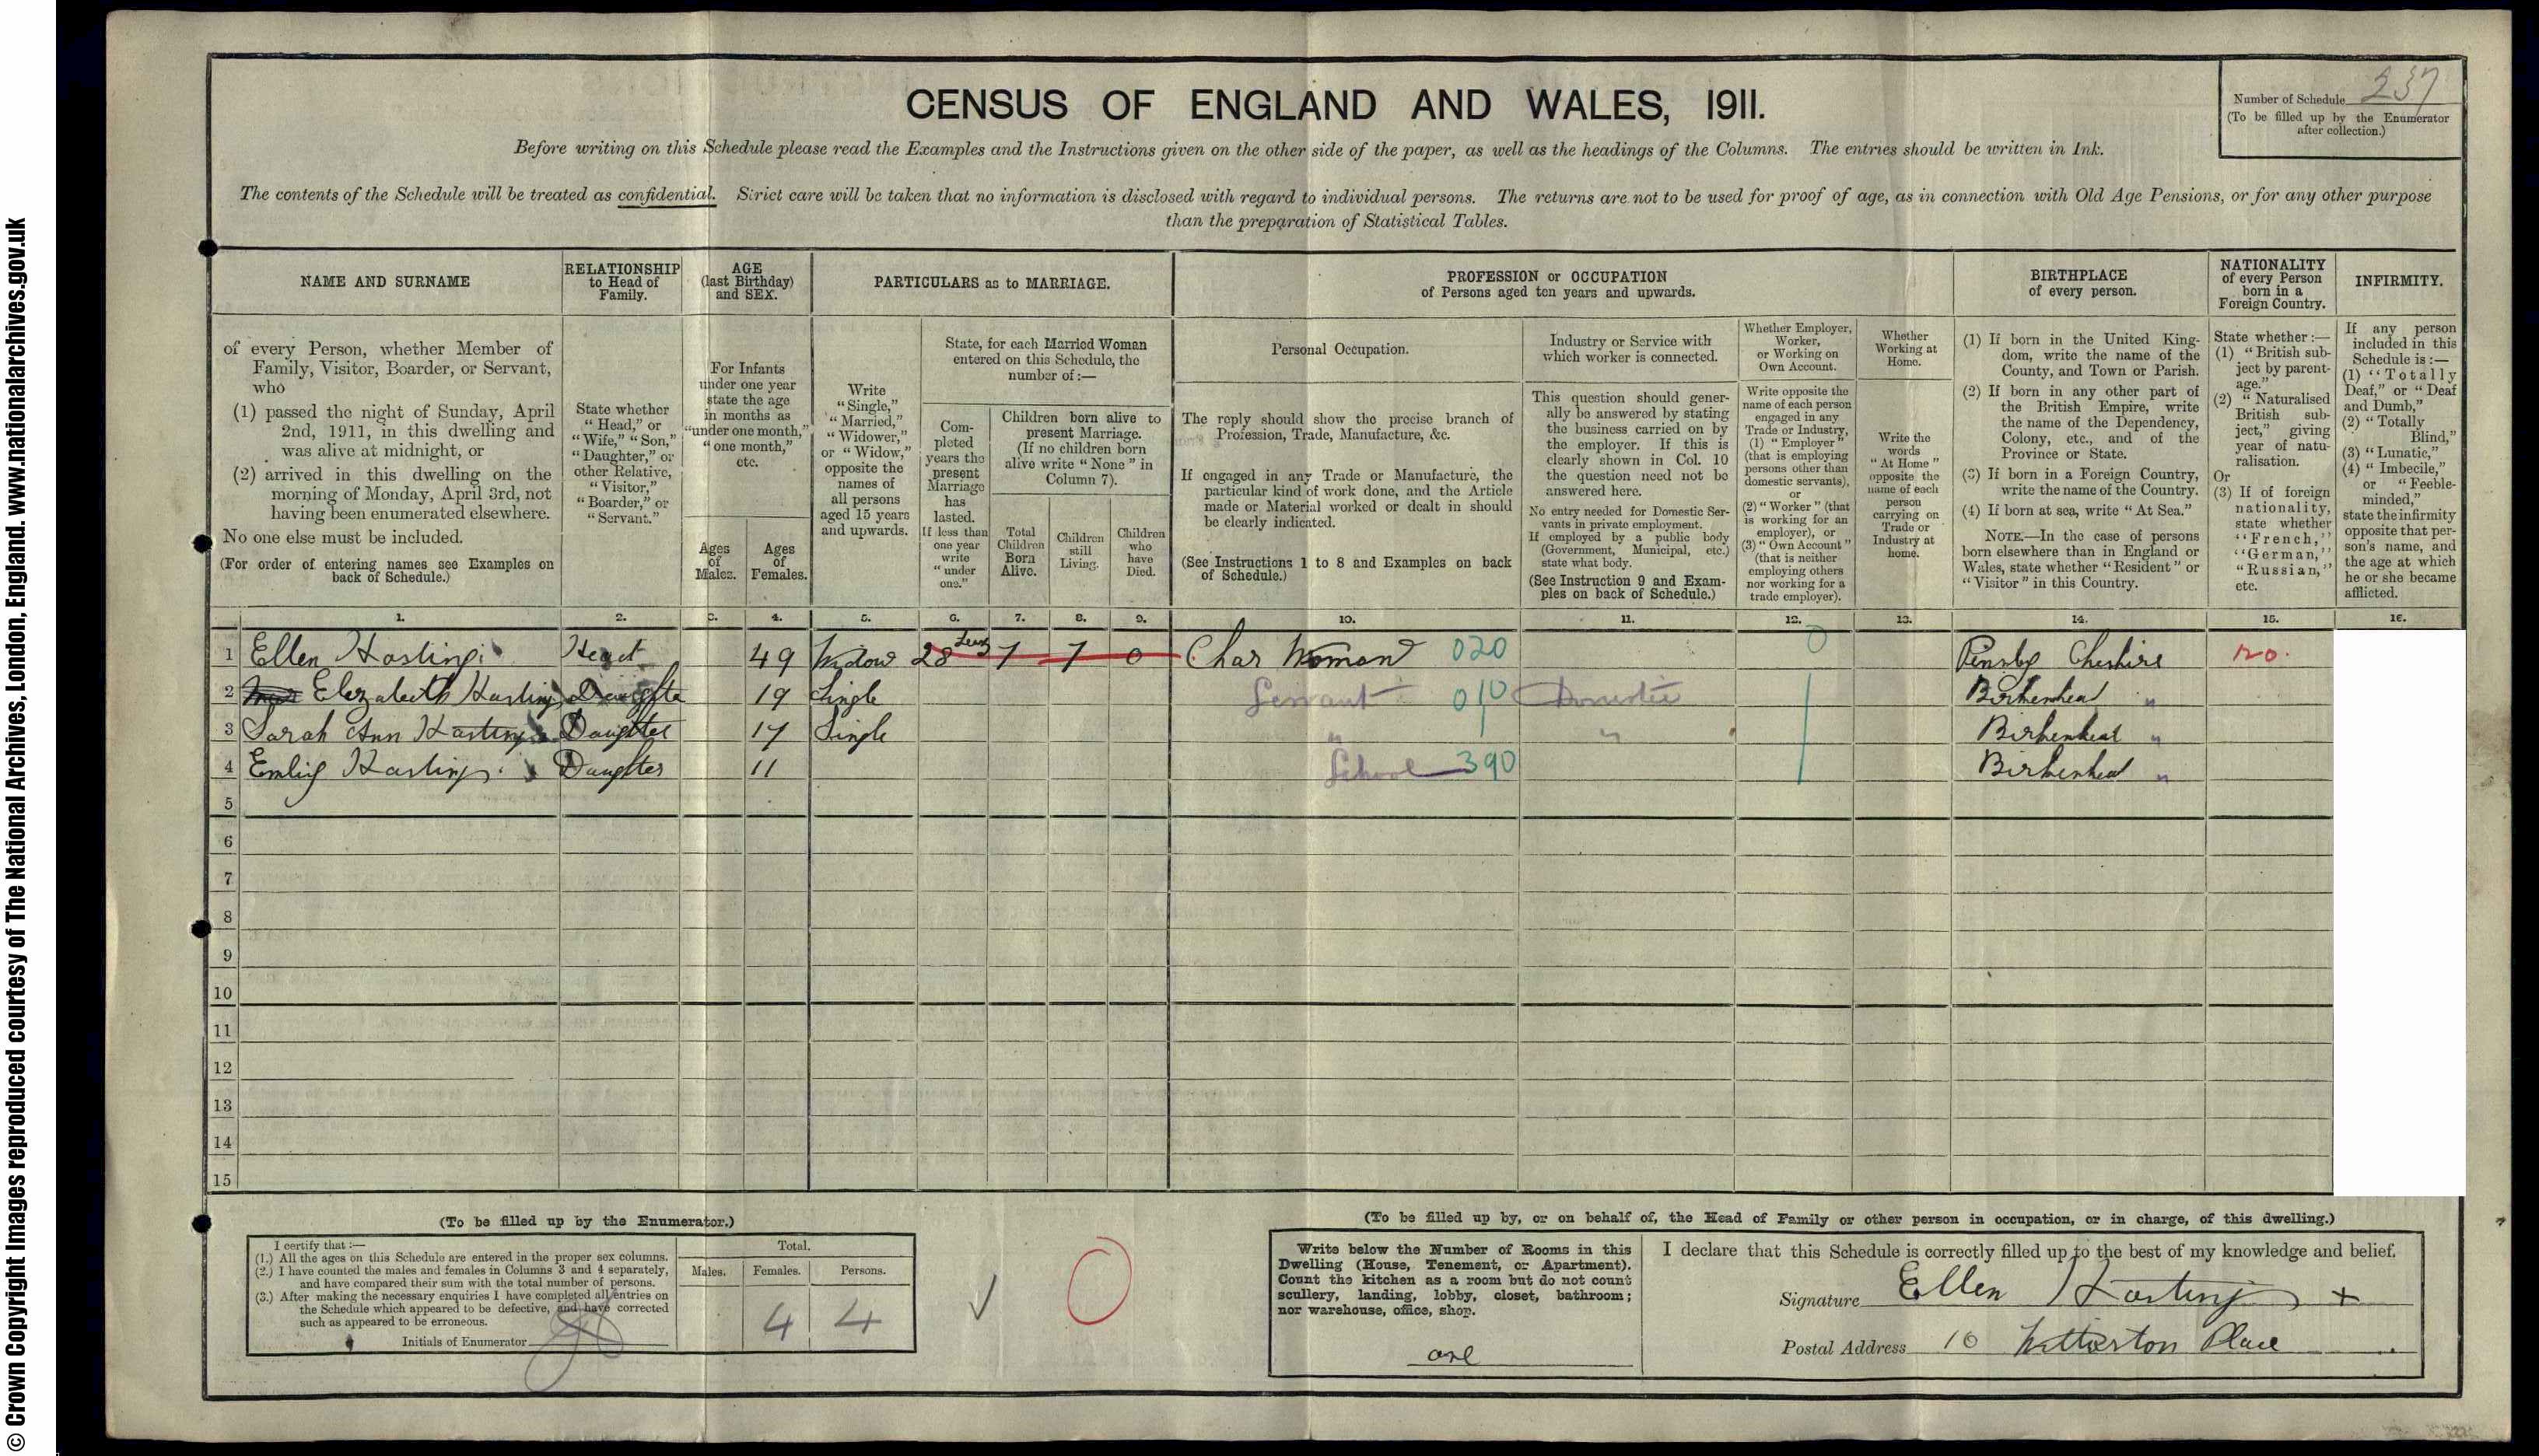 © Crown Copyright Images reproduced courtesy of The National Archives, London, England. www.nationalarchives.gov.uk
CENSUS OF ENGLAND AND WALES, 1911.
Number of Schedule 237
(To be filled up by the Enumerator after collection.)
Before writing on this Schedule please read the Examples and the Instructions given on the other side of the paper, as well as the headings of the Columns. The entries should be written in Ink.
The contents of the Schedule will be treated as confidential. Strict care will be taken that no information is disclosed with regard to individual persons. The returns are not to be used for proof of age, as in connection with Old Age Pensions, or for any other purpose
than the preparation of Statistical Tables.
NAME AND SURNAME
of every Person, whether Member of
Family, Visitor, Boarder, or Servant,
who
(1) passed the night of Sunday, April
2nd, 1911, in this dwelling and
was alive at midnight, or
(2) arrived in this dwelling on the
morning of Monday, April 3rd, not
having been enumerated elsewhere.
No one else must be included.
(For order of entering names see Examples on
back of Schedule.)
RELATIONSHIP
to Head of
Family.
State whether
"Head," or
"Wife," "Son,"
"Daughter," or
other Relative,
"Visitor,"
"Boarder," or
"Servant."
AGE
(last Birthday)
and SEX.
For Infants
under one year
state the age
in months as
"under one month,"
"one month,"
etc.
Ages
of
Males.
Ages
of
Females.
PARTICULARS as to MARRIAGE.
Write
"Single,"
"Married,"
"Widower,"
or "Widow,"
opposite the
names of
all persons
aged 15 years
and upwards.
State, for each Married Woman
entered on this Schedule, the
number of:—
Com-
pleted
years the
present
Marriage
has
lasted.
If less than
one year
write
"under
one."
Children born alive to
present Marriage.
(If no children born
alive write "None" in
Column 7).
Total
Children
Born
Alive.
Children
still
Living.
Children
who
have
Died.
PROFESSION or OCCUPATION
of Persons aged ten years and upwards.
Personal Occupation.
The reply should show the precise branch of
Profession, Trade, Manufacture, &c.
If engaged in any Trade or Manufacture, the
particular kind of work done, and the Article
made or Material worked or dealt in should
be clearly indicated.
(See Instructions 1 to 8 and Examples on back
of Schedule.)
Industry or Service with
which worker is connected.
This question should gener-
ally be answered by stating
the business carried on by
the employer. If this is
clearly shown in Col. 10
the question need not be
answered here.
No entry needed for Domestic Ser-
vants in private employment.
If employed by a public body
(Government, Municipal, etc.)
state what body.
(See Instruction 9 and Exam-
ples on back of Schedule.)
Whether Employer,
Worker,
or Working on
Own Account.
Write opposite the
name of each person
engaged in any
Trade or Industry,
(1) "Employer"
(that is employing
persons other than
domestic servants),
or
(2) "Worker" (that
is working for an
employer), or
(3) "Own Account"
(that is neither
employing others
nor working for a
trade employer).
Whether
Working at
Home.
Write the
words
"At Home"
opposite the
name of each
person
carrying on
Trade or
Industry at
home.
BIRTHPLACE
of every person.
(1) If born in the United King-
dom, write the name of the
County, and Town or Parish.
(2) If born in any other part of
the British Empire, write
the name of the Dependency,
Colony, etc., and of the
Province or State.
(3) If born in a Foreign Country,
write the name of the Country.
(4) If born at sea, write "At Sea."
NOTE.—In the case of persons
born elsewhere than in England or
Wales, state whether "Resident" or
"Visitor" in this Country.
NATIONALITY
of every Person
born in a
Foreign Country.
State whether:—
(1) "British sub-
ject by parent-
age."
(2) "Naturalised
British sub-
ject," giving
year of natu-
ralisation.
Or
(3) If of foreign
nationality,
state whether
"French,"
"German,"
"Russian,"
etc.
INFIRMITY.
If any person
included in this
Schedule is:—
(1) "Totally
Deaf," or "Deaf
and Dumb,"
(2) "Totally
Blind,"
(3) "Lunatic,"
(4) "Imbecile,"
or "Feeble-
minded,"
state the infirmity
opposite that per-
son's name, and
the age at which
he or she became
afflicted.
1. 2. 3. 4. 5. 6. 7. 8. 9. 10. 11. 12. 13. 14. 15. 16.
1 Ellen Hastings Head 49 Widow 28 7 7 0 Char Woman 020 0 Pensby Cheshire 120.
2 Elezabeth Hastings Daughte 19 Single Servant 010 Domestic Birkenhead "
3 Sarah Ann Hastings Daughter 17 Single " " Birkenhead "
4 Emliy Hastings Daughter 11 School 390 Birkenhead "
5
6
7
8
9
10
11
12
13
14
15
(To be filled up by the Enumerator.)
I certify that:—
(1.) All the ages on this Schedule are entered in the proper sex columns.
(2.) I have counted the males and females in Columns 3 and 4 separately,
and have compared their sum with the total number of persons.
(3.) After making the necessary enquiries I have completed all entries on
the Schedule which appeared to be defective, and have corrected
such as appeared to be erroneous.
Initials of Enumerator
Total.
Males. Females. Persons.
4 4
(To be filled up by, or on behalf of, the Head of Family or other person in occupation, or in charge, of this dwelling.)
Write below the Number of Rooms in this
Dwelling (House, Tenement, or Apartment).
Count the kitchen as a room but do not count
scullery, landing, lobby, closet, bathroom;
nor warehouse, office, shop.
one
I declare that this Schedule is correctly filled up to the best of my knowledge and belief.
Signature Ellen Hastings +
Postal Address 10 Place